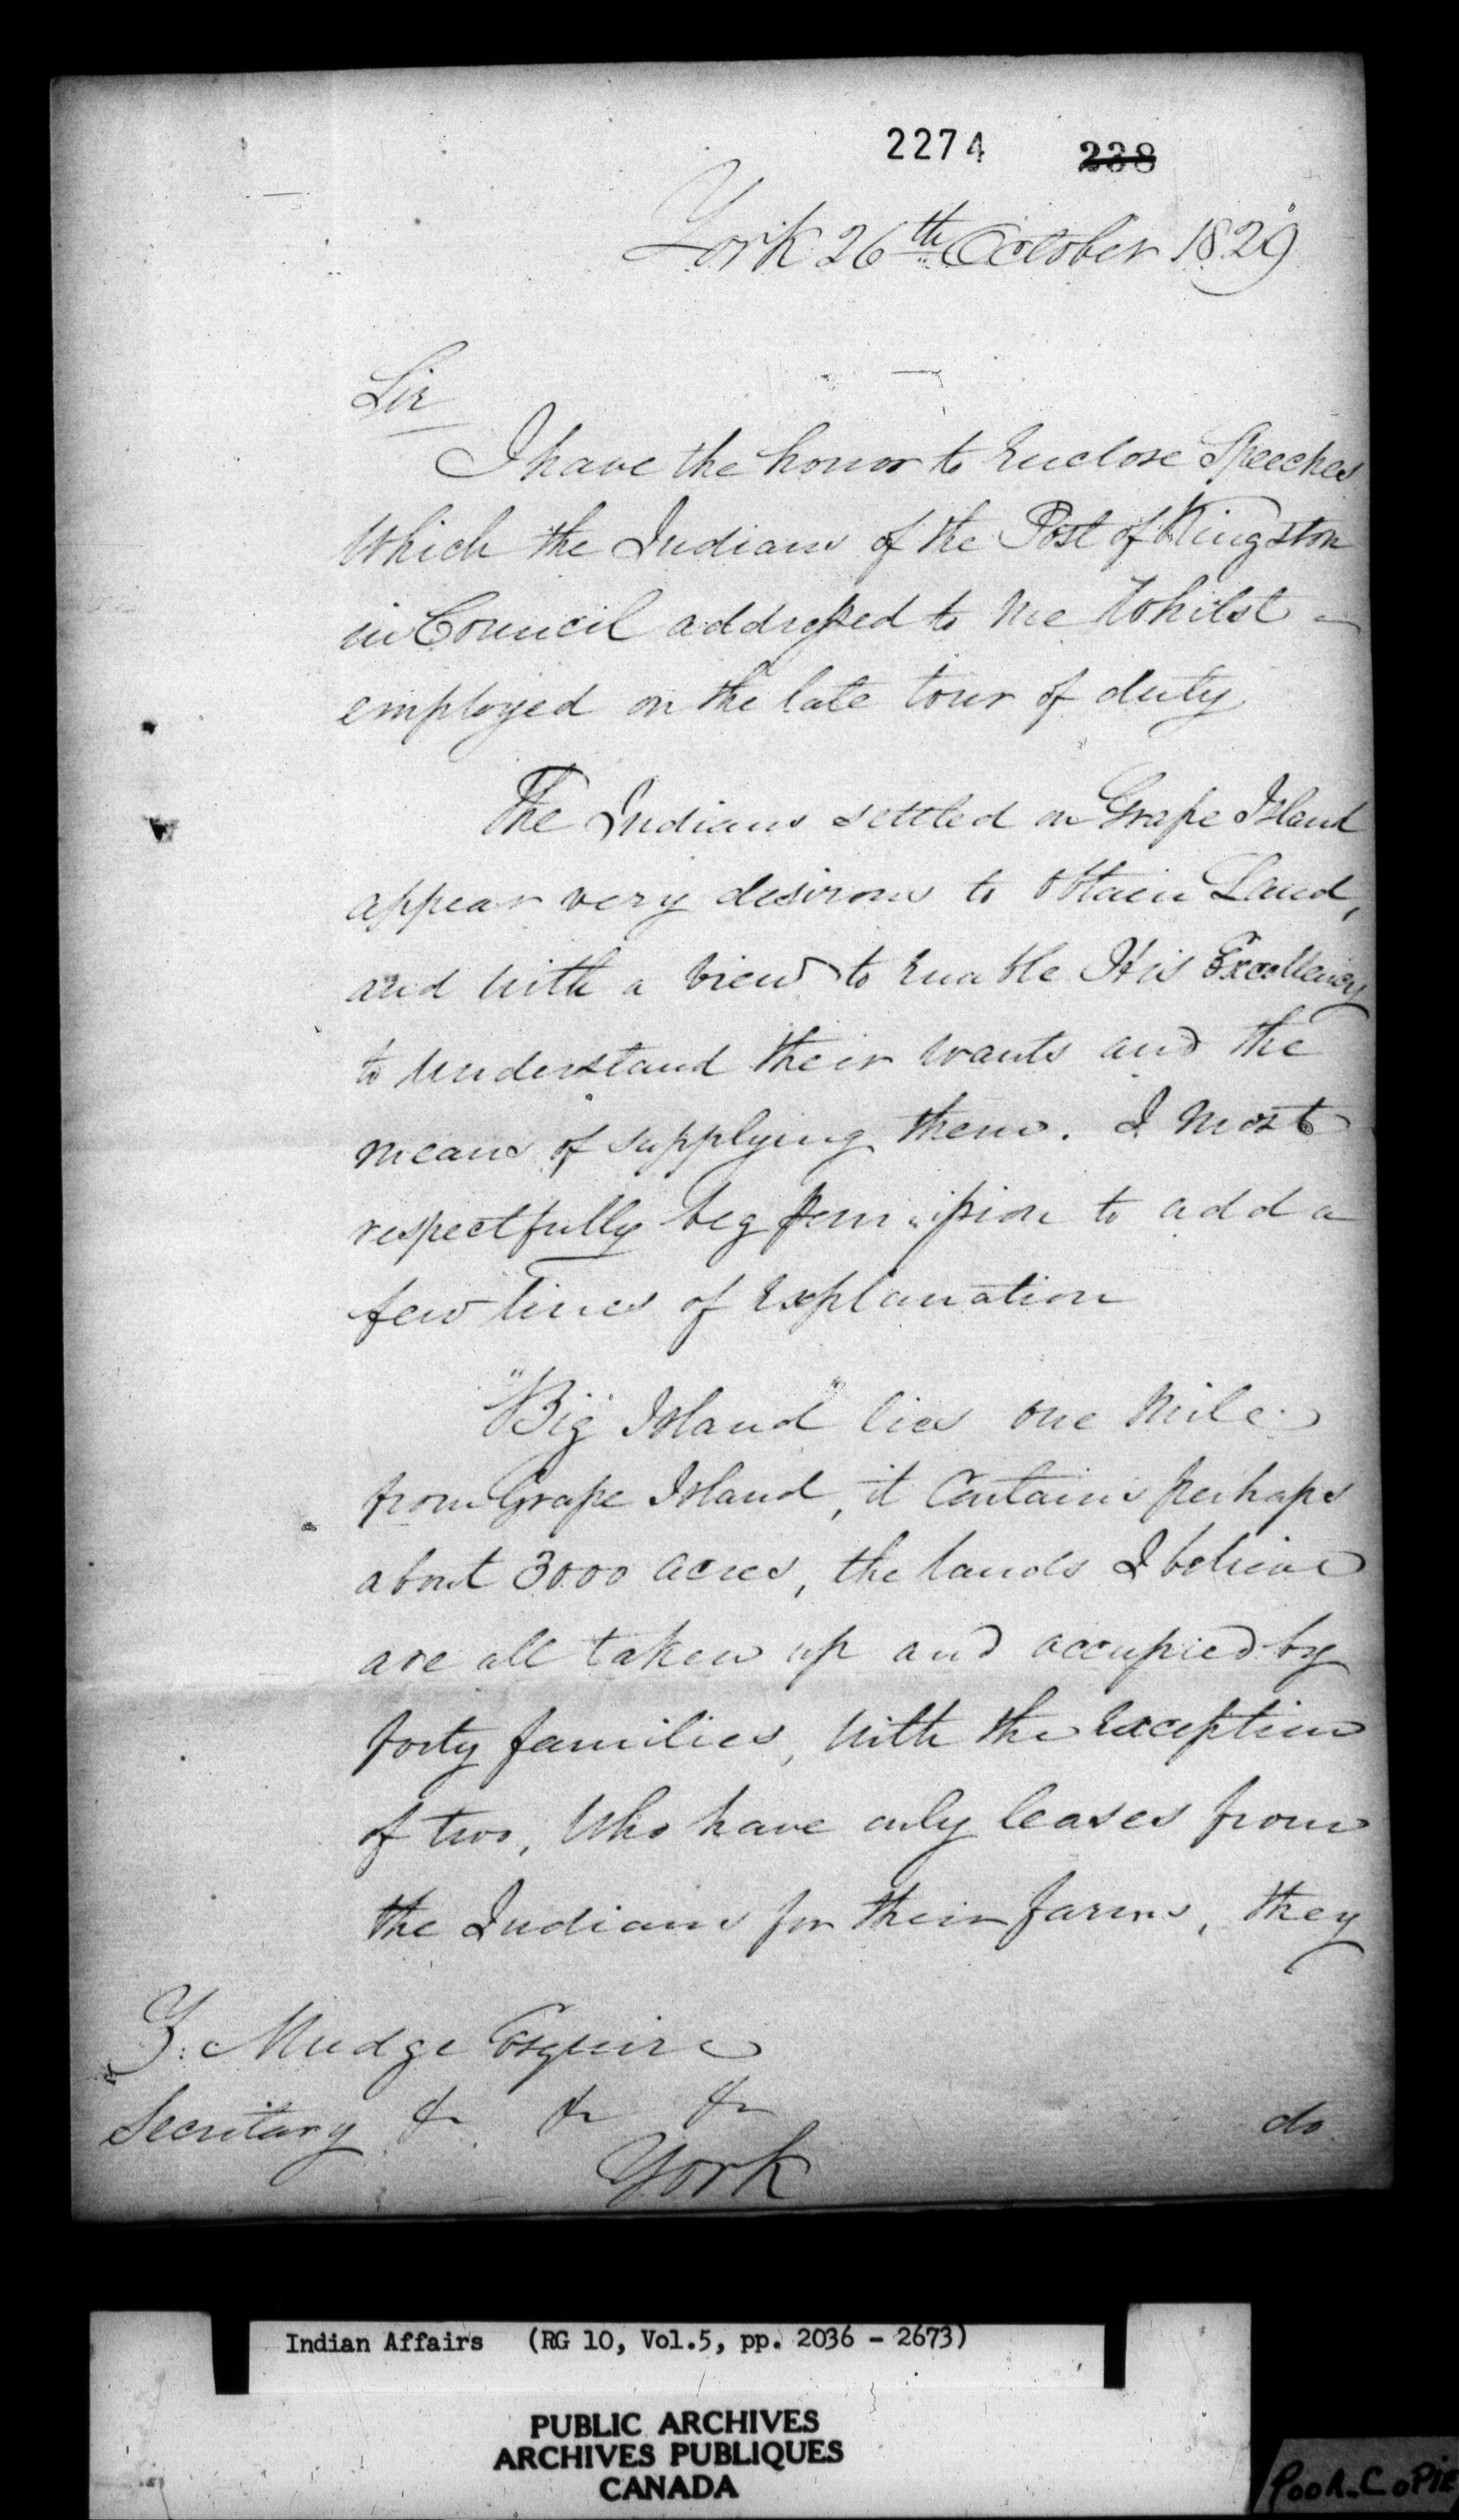 2274 238
York 26th October 1829
Sir
I have the honor to Enclose Speeches
Which the Indians of the Post of Kingston
in Council addressed to me Whilst
employed on the late tour of duty
The Indians settled on Grape Island
appear very desirous to obtain Land,
and with a view to Enable His Excellency
to Understand their wants and the
means of supplying them. I most
respectfully beg permission to add a
few lines of Explanation
"Big Island" lies one Mile
from Grape Island, it Contains perhaps
about 3000 acres, the lands I believe
are all taken up and occupied by
forty families, With the Exception
of two, Who have only leases from
the Indians for their farms, they
Z: Mudge Esquire
Secretary &c &c &c
do
York
Indian Affairs (RG 10, Vol.5, pp. 2036 - 2673)
PUBLIC ARCHIVES
ARCHIVES PUBLIQUES
CANADA
POOR COPIE